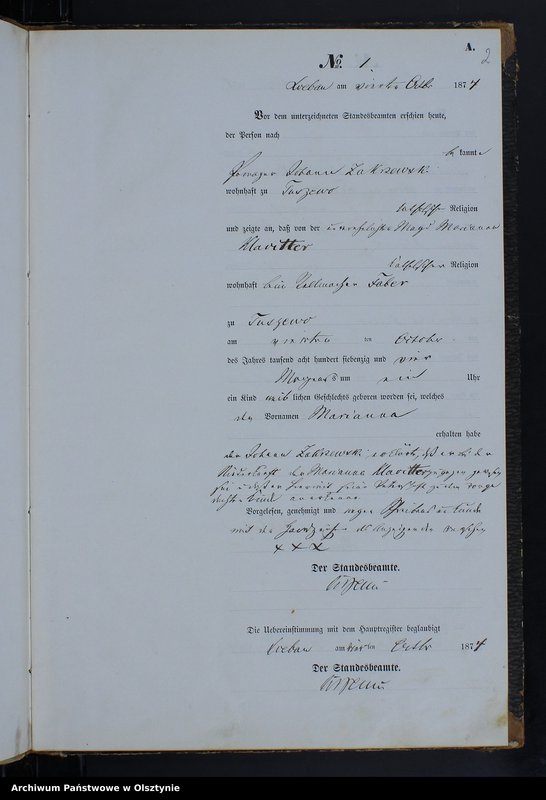 A.
2
No. 1
Loebau am vierten Octb. 1874
Vor dem unterzeichneten Standesbeamten erschien heute,
der Person nach
bekannte
Johann Zakrzewski
wohnhaft zu Tuszewo
katholischer Religion
und zeigte an, daß von der unverehelichte Magd Marianna
Klavitter
katholischer Religion
wohnhaft beim Faber
zu Tuszewo
am vierten ten October
des Jahres tausend acht hundert siebenzig und vier
Morgens um Uhr
ein Kind weiblichen Geschlechts geboren worden sei, welches
den Vornamen Marianna
erhalten habe
der Johann Zakrzewski erklärt, daß er bei der
Niederkunft der Marianna Klavitter zugegen gewesen
sei
Kinde anerkenne
Vorgelesen, genehmigt und wegen Schreibens
mit den Handzeichen des Anzeigenden versehen
x x x
Der Standesbeamte.
Die Uebereinstimmung mit dem Hauptregister beglaubigt
Loebau am vier ten Octb. 1874
Der Standesbeamte.
Archiwum Państwowe w Olsztynie